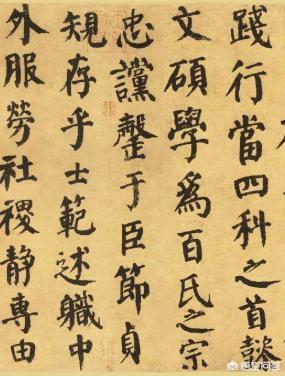 踐行當四科之首懿
文碩學爲百氏之宗
忠讜罄于臣節貞
規存乎士範述職中
外服勞社稷靜專由